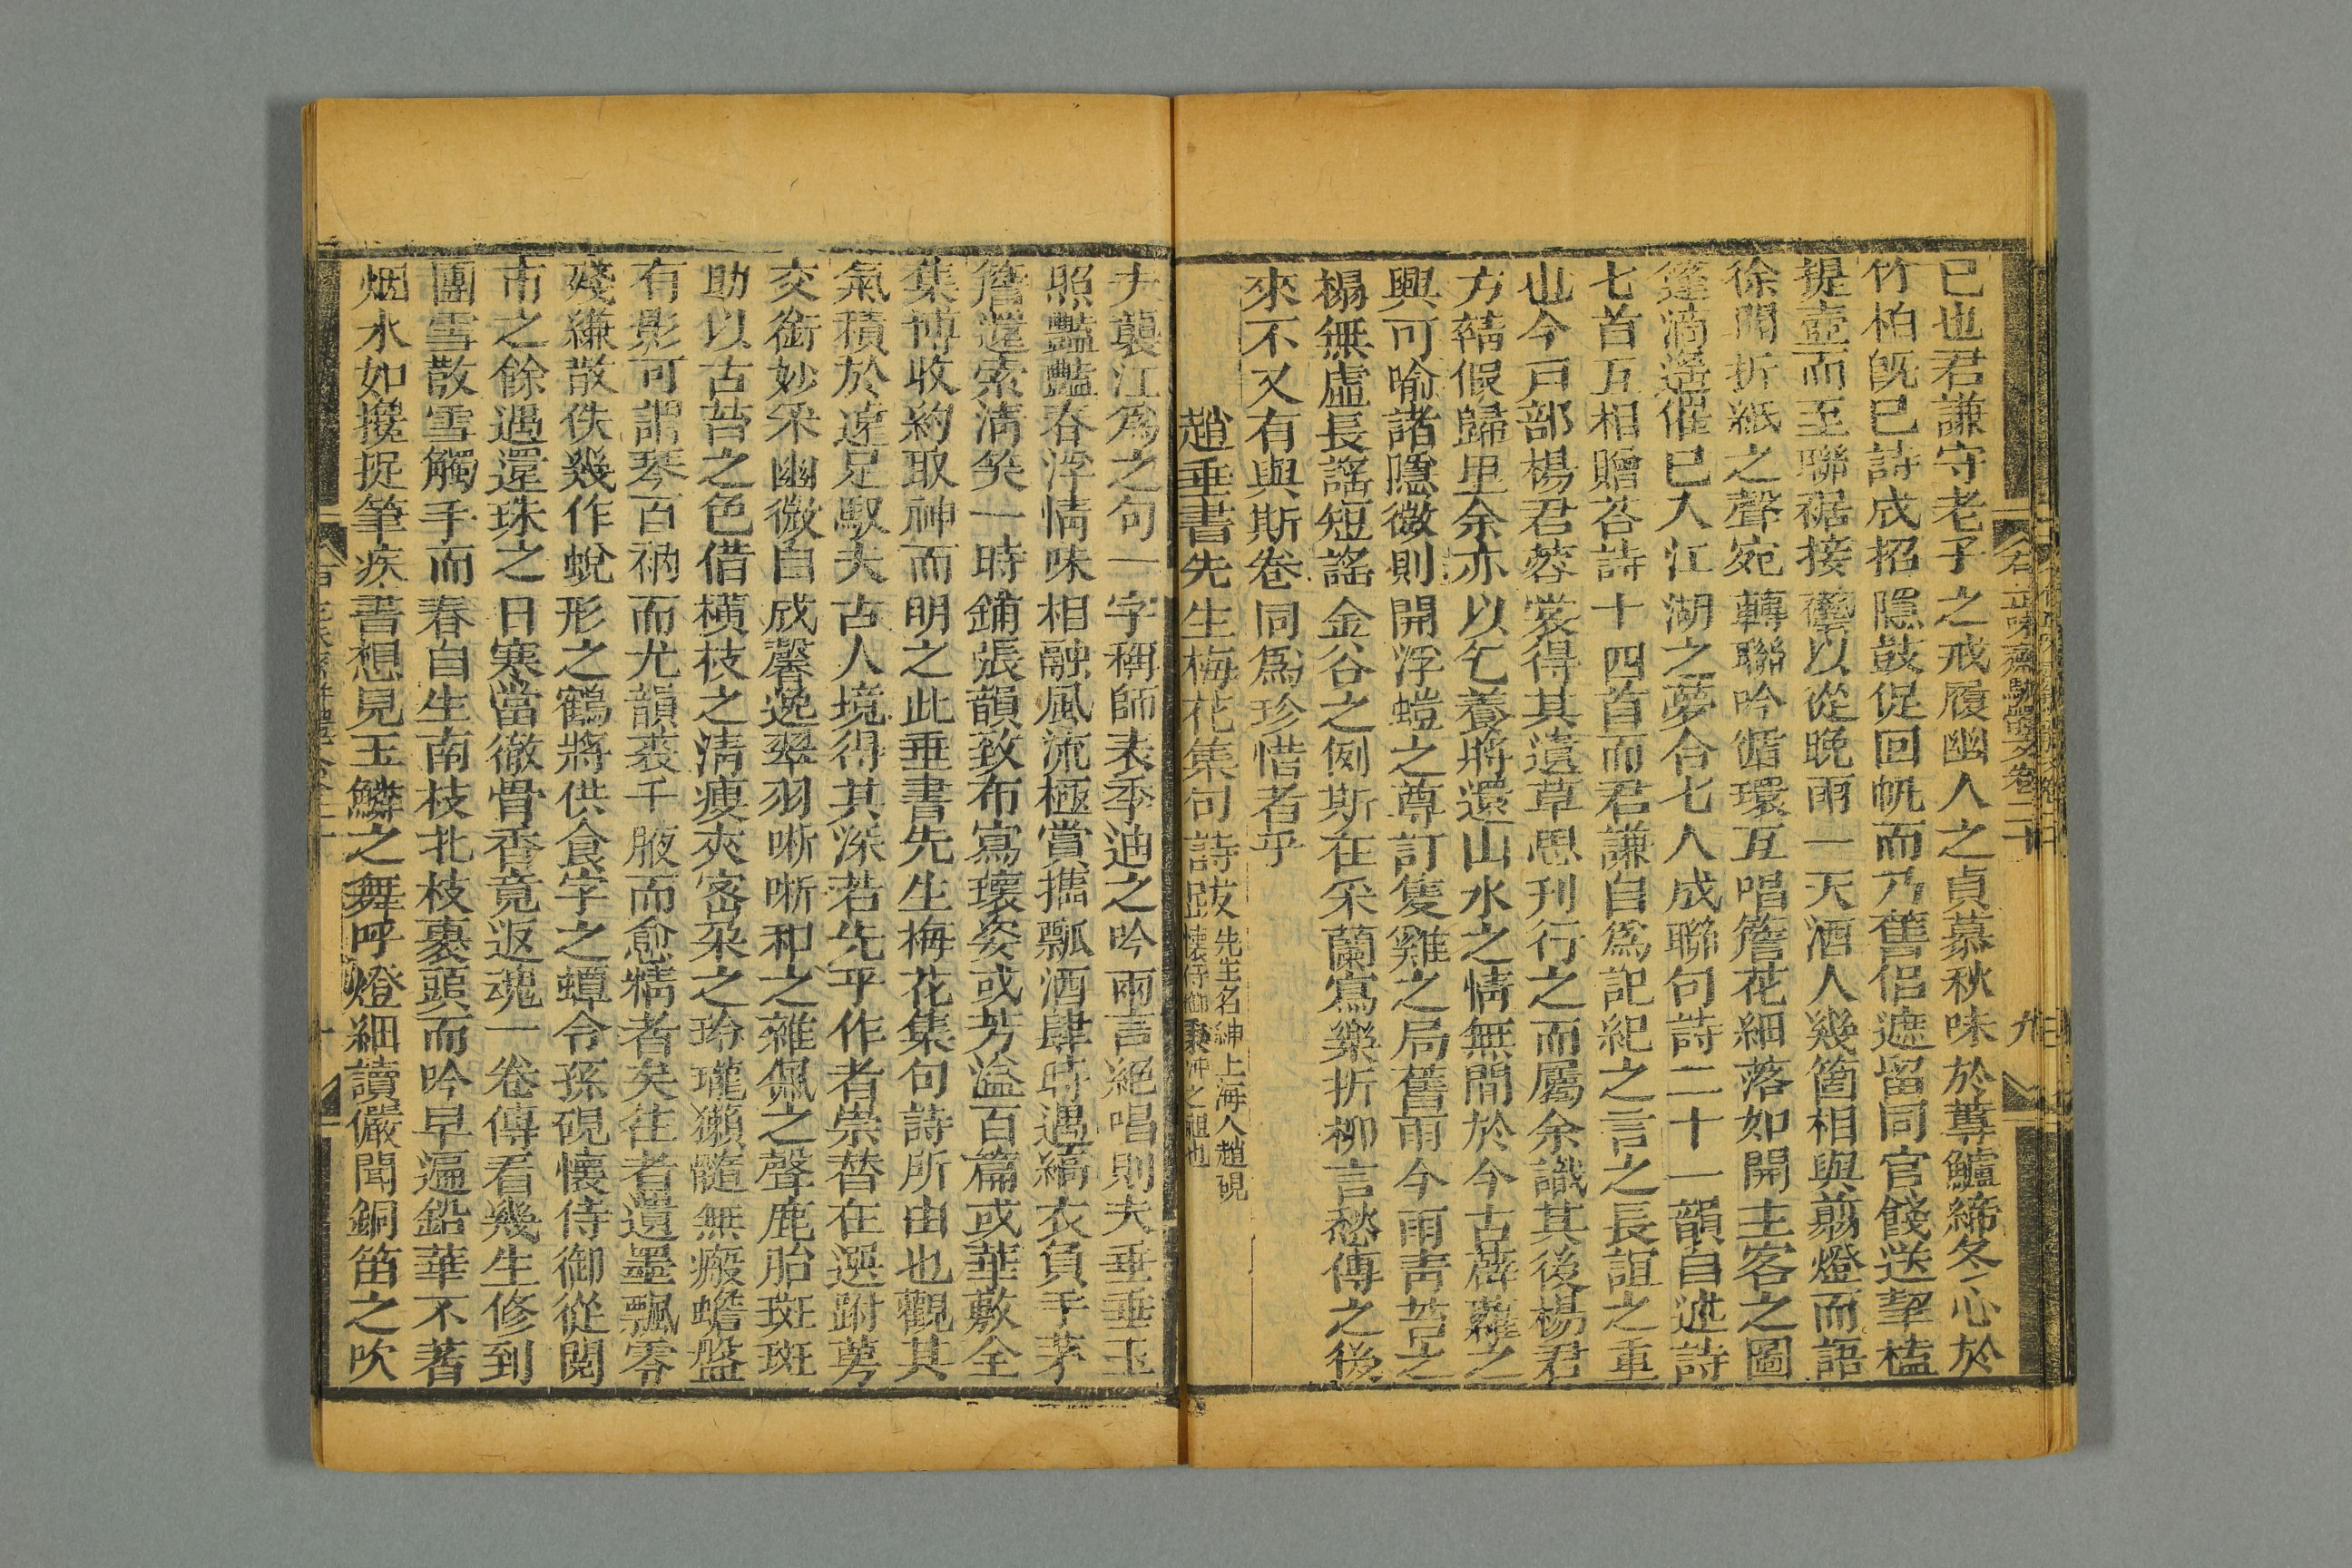 已也君謙守老子之戒履幽人之貞慕秋味於蓴鱸締冬心於
竹柏旣已詩成招隱鼓促回帆而乃舊侶遮留同官餞送挈榼
提壺而至聯裾接襼以從晩雨一天酒人幾箇相與剪燈而語
徐開折紙之聲宛轉聯吟循環互唱簷花細落如開主客之圖
篷滴遥催已入江湖之夢合七人成聯句詩二十一韻自述詩
七首互相贈荅詩十四首而君謙自爲記紀之言之長誼之重
也今戸部楊君蓉裳得其遺草思刋行之而屬余識其後楊君
方請假歸里余亦以乞養將還山水之情無間於今古薜蘿之
興可喻諸隱微則開浮螘之尊訂隻雞之局舊雨今雨靑苔之
榻無虛長謠短謠金谷之例斯在采蘭寫樂折柳言愁傳之後
來不又有與斯卷同爲珍惜者乎
趙垂書先生梅花集句詩跋
先生名紳上海人趙硯
懐侍御秉沖之祖也
夫襲江爲之句一字稱師表季迪之吟兩言絕唱則夫垂垂玉
照豔豔春浮情味相融風流極賞攜瓢酒肆時遇縞衣負手茅
簷還索淸笑一時鋪張韻致布寫壞姿或芳溢百篇或華敷全
集博收約取神而明之此垂書先生梅花集句詩所由也觀其
氣積於遠足馭夫古人境得其深若先乎作者崇替在選跗萼
交銜妙采幽微自成馨逸翠羽啾啾和之雜佩之聲鹿胎斑斑
助以古苔之色借横枝之淸瘦夾宻朶之玲瓏獺髓無瘢蟾盤
有影可謂琴百衲而尤韻裘千腋而愈精者矣往者遺墨飄零
殘縑散佚幾作蛻形之鶴將供食字之蟫令孫硯懷侍御從閱
市之餘遇還珠之日寒當徹骨香竟返魂一卷傳看幾生修到
團雪散雪觸手而春自生南枝北枝裹頭而吟早遍鉛華不著
烟水如攙捉筆疾書想見玉鱗之舞呼燈細讀儼聞銅笛之吹